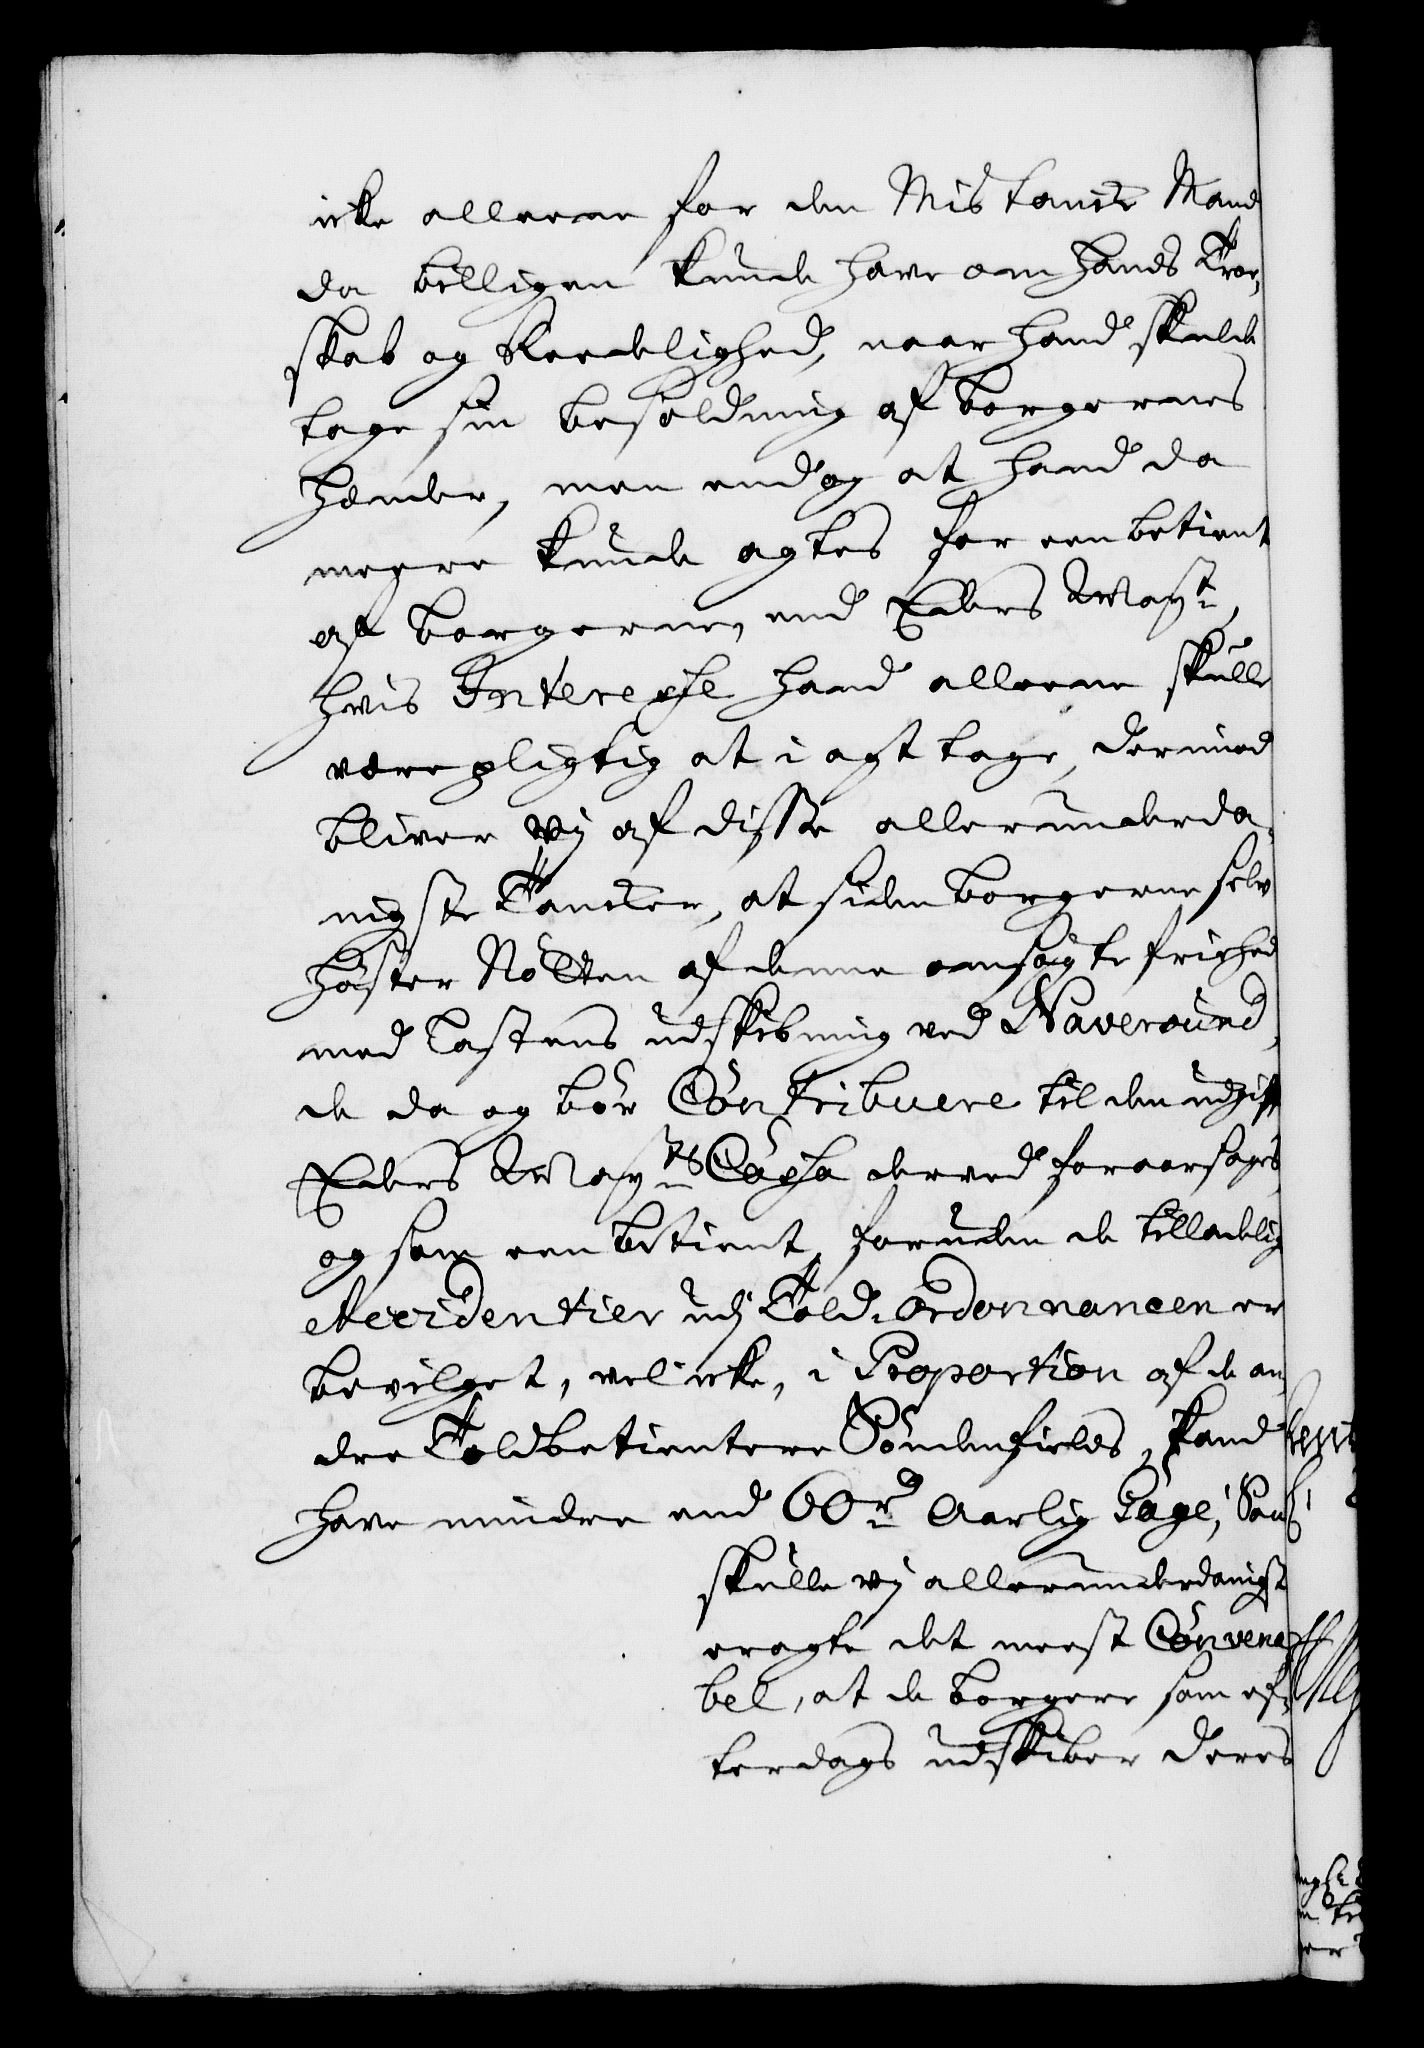 icke alleene for den Mistancke Mand
da billigen kunde have om hands Troe,
skab og Reedelighed, naar hand skulde
tage sin besoldning af borgernes
hænder, men end og at hand da
meere kunde agtes for een betient
af borgerne, end Eders Kong May:t,
hvis Interesse hand alleene skulle
være pligtig at i agt tage, dermed
bliver vij af disse allerunderda,
nigste Tancker, at siden borgerne selv
høster Nøtten af denne ansøgte frighed
med Lastens udskibning ved Naversund,
de da og bør Contribuere til den udgift
Eders Kong May:ts Cassa derved foraarsages,
og som een betient, foruden de tilladelig
Accidentier udj Told-Ordonnancen er
bevilget, vel icke, i Proportion af de an,
dre Toldbetientere Søndenfields, kand
have mindre end 60 rd aarlig Gage, Saa
skulle vij allerunderdanigst
eragte det meest Convena,
bel, at de borgere som ef,
terdags udskiber deres